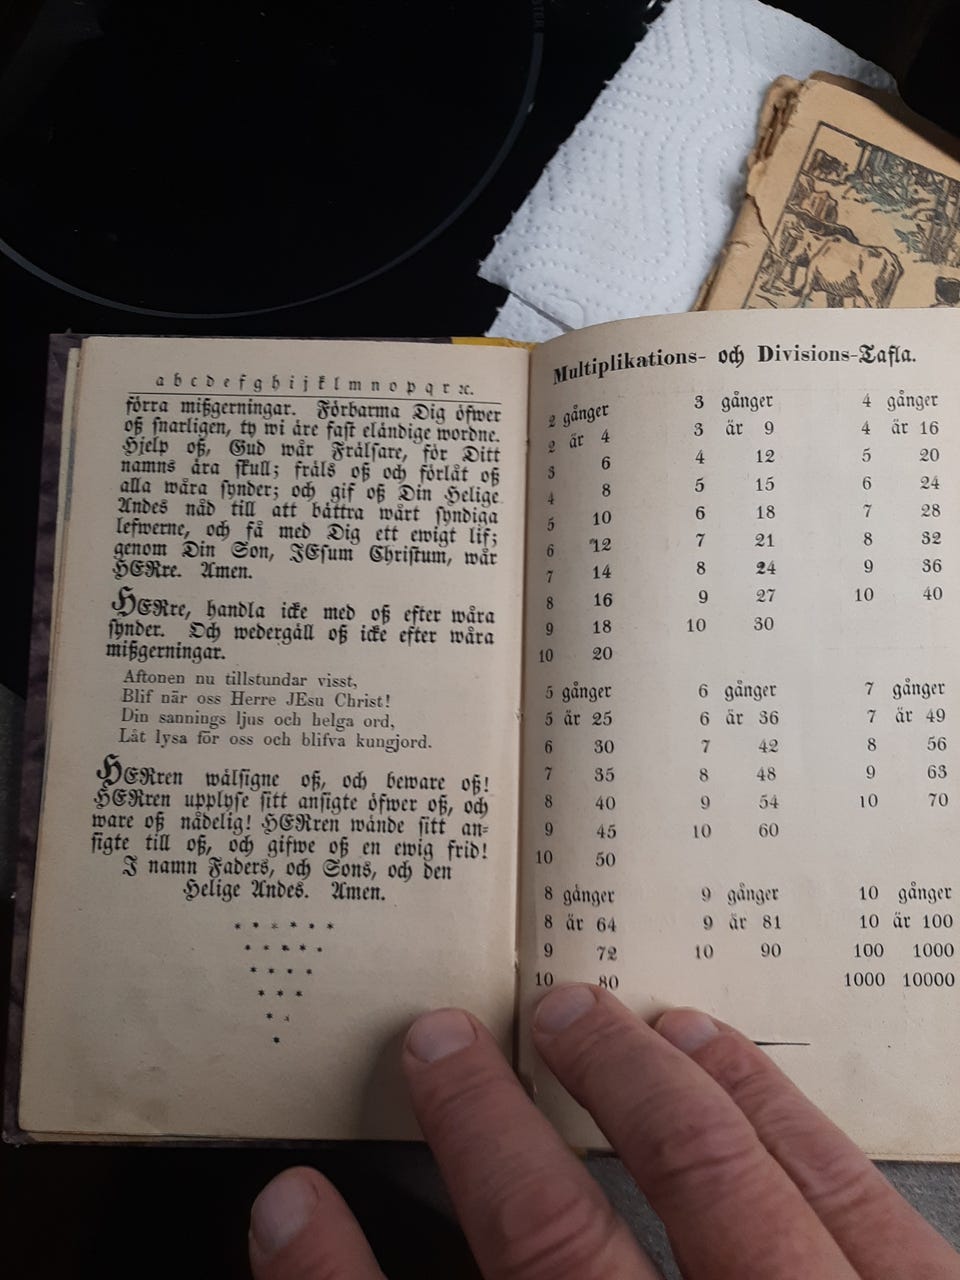 a b c d e f g h i j k l m n o p q r ꝛc.
förra mißgerningar. Förbarma Dig öfwer
oß snarligen, ty wi äre fast eländige wordne.
Hjelp oß, Gud wår Frälsare, för Ditt
namns ära skull; fräls oß och förlåt oß
alla wåra synder; och gif oß Din Helige
Andes nåd till att bättra wårt syndiga
lefwerne, och få med Dig ett ewigt lif;
genom Din Son, JEsum Christum, wår
HERre. Amen.
HERre, handla icke med oß efter wåra
synder. Och wedergäll oß icke efter wåra
mißgerningar.
Aftonen nu tillstundar visst,
Blif när oss Herre JEsu Christ!
Din sannings ljus och helga ord,
Låt lysa för oss och blifva kungjord.
HERren wälsigne oß, och beware oß!
HERren upplyse sitt ansigte öfwer oß, och
ware oß nådelig! HERren wände sitt an-
sigte till oß, och gifwe oß en ewig frid!
I namn Faders, och Sons, och den
Helige Andes. Amen.
* * * * * *
* * * * *
* * * *
* * *
* *
*
Multiplikations- och Divisions-Tafla.
2 gånger 3 gånger 4 gånger
2 är 4 3 är 9 4 är 16
3 6 4 12 5 20
4 8 5 15 6 24
5 10 6 18 7 28
6 12 7 21 8 32
7 14 8 24 9 36
8 16 9 27 10 40
9 18 10 30
10 20
5 gånger 6 gånger 7 gånger
5 är 25 6 är 36 7 är 49
6 30 7 42 8 56
7 35 8 48 9 63
8 40 9 54 10 70
9 45 10 60
10 50
8 gånger 9 gånger 10 gånger
8 är 64 9 är 81 10 är 100
9 72 10 90 100 1000
10 80 1000 10000